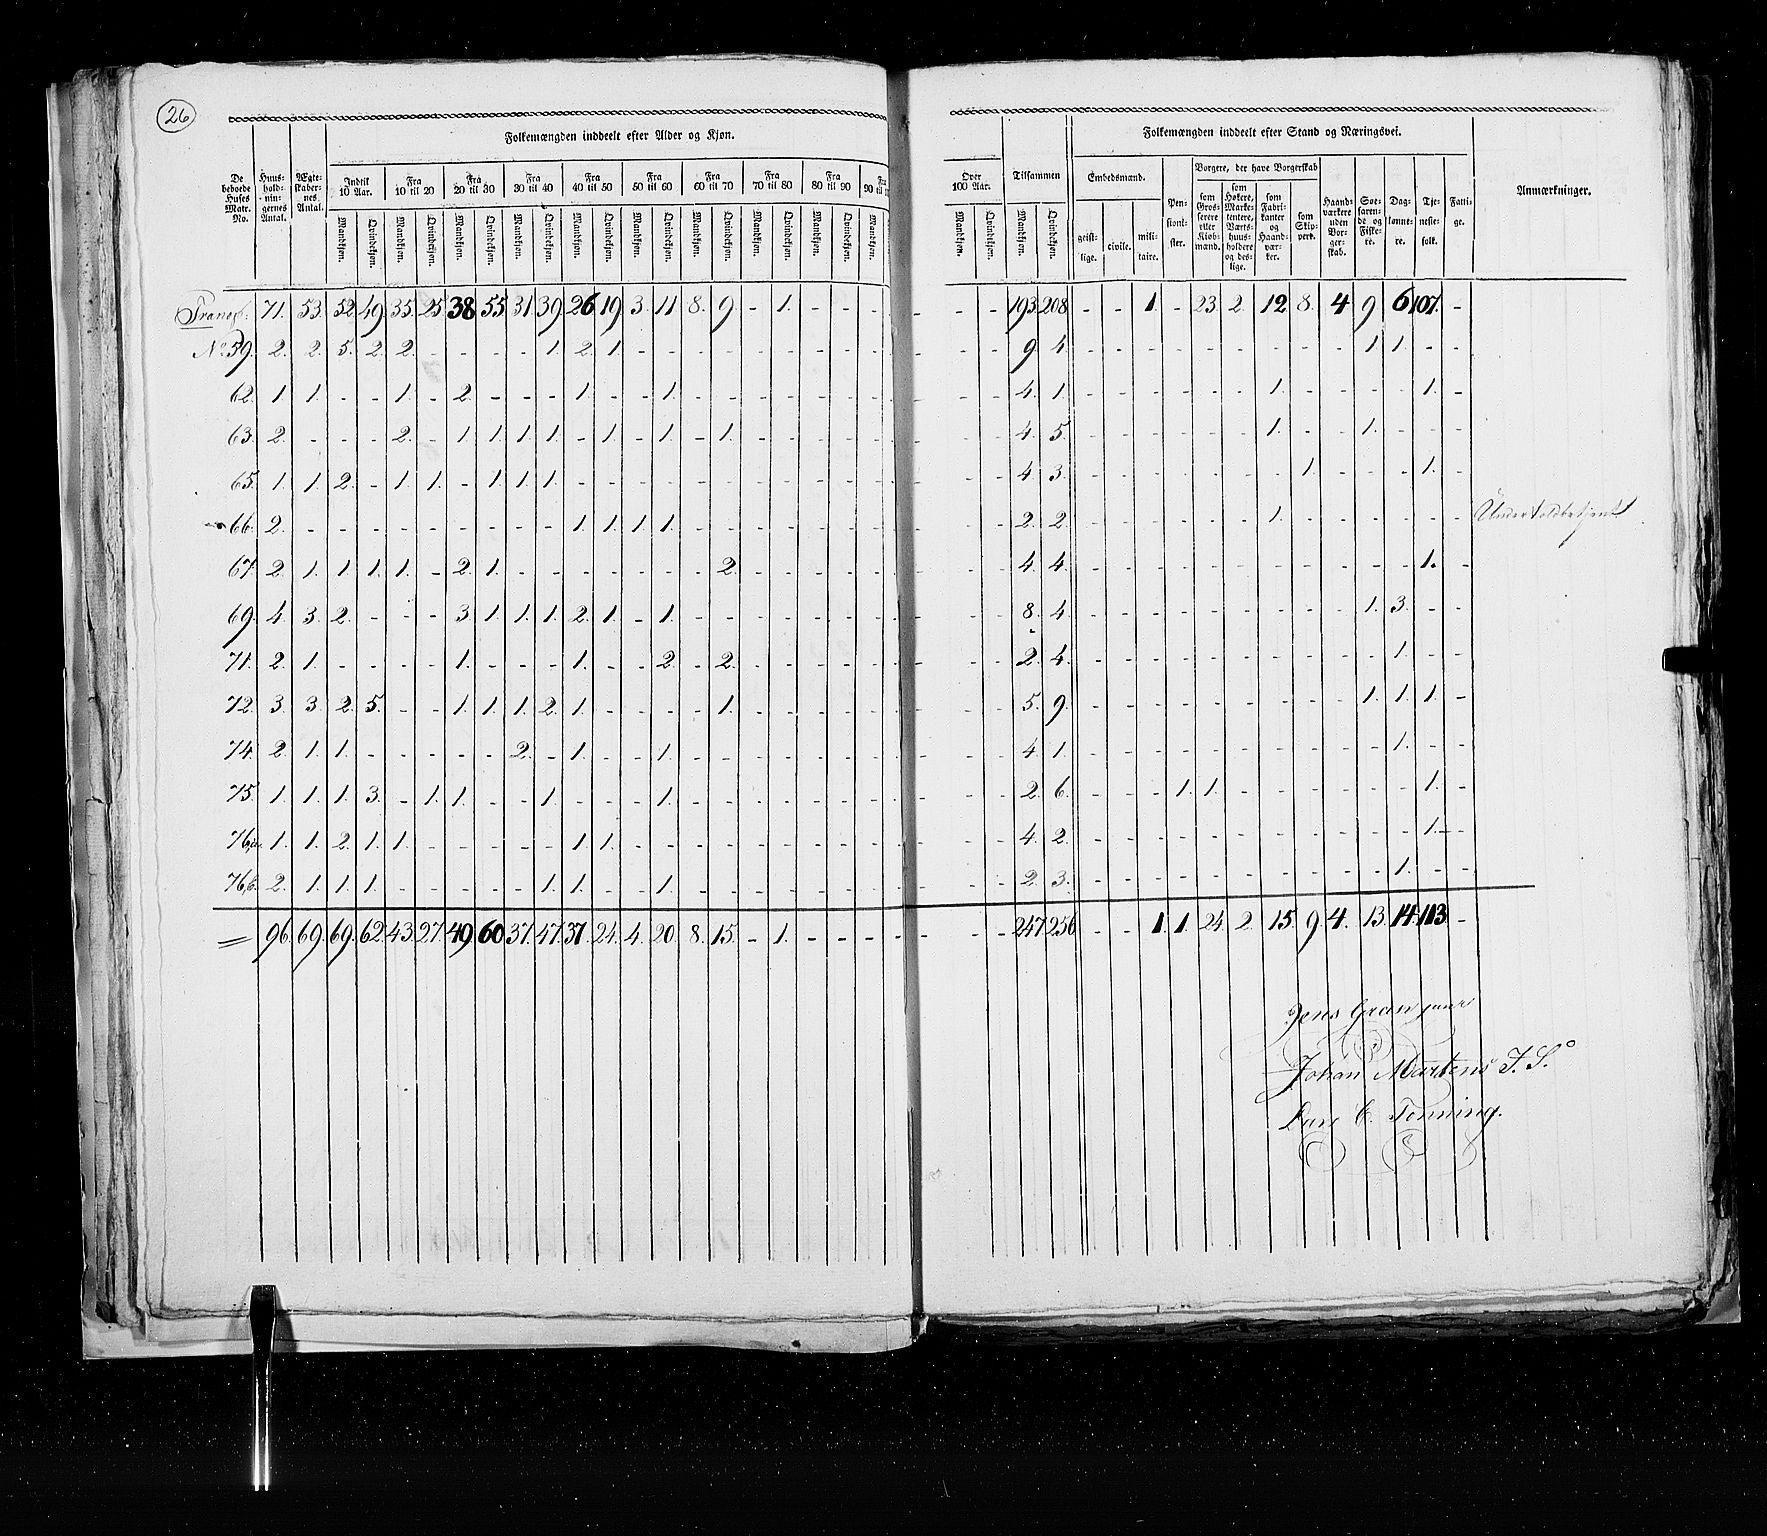 26
Folkemængden inddeelt efter Alder og Kjøn.
De beboede Huses Matr. No. | Huusholdningernes Antal. | Ægteskabernes Antal. | Indtil 10 Aar. | Fra 10 til 20 | Fra 20 til 30 | Fra 30 til 40 | Fra 40 til 50 | Fra 50 til 60 | Fra 60 til 70 | Fra 70 til 80 | Fra 80 til 90 | Fra 90 til
Mandkjøn. Qvindekjøn. Mandkjøn. Qvindekjøn. Mandkjøn. Qvindekjøn. Mandkjøn. Qvindekjøn. Mandkjøn. Qvindekjøn. Mandkjøn. Qvindekjøn. Mandkjøn. Qvindekjøn. Mandkjøn. Qvindekjøn. Mandkjøn. Qvindekjøn. Mandkjøn.
Folkemængden inddeelt efter Stand og Næringsvei.
Over 100 Aar. | Tilsammen | Embedsmænd. | Borgere, der have Borgerskab | Anmærkninger.
Mandkjøn. Qvindekjøn. Mandkjøn. Qvindekjøn. | geistlige. | civile. | militaire. | Pensionister. | som Grosserere eller Kiøbmænd. | som Høkere, Marketentere, Værtshuusholdere og deslige. | som Fabrikanter og Haandværker. | som Skippere. | Haandværkere uden Borgerskab. | Søefarende og Fiskere. | Daglønnere. | Tjenestefolk. | Fattige.
Transp. 71. 53. 52. 49. 35. 25. 38 55. 31. 39. 26 19. 3. 11. 8. 9. - 1. - - - - - 193. 208. - - 1. - 23. 2. 12. 8. 4 9. 6 107. -
No 59. 2. 2. 5. 2. 2. - - - - 1. 2. 1. - - - - - - - - - - - 9. 4. - - - - - - - - - 1. 1. - -
62. 1. 1. - - 1. - 2. - - - 1. - - 1. - - - - - - - - - 4. 1. - - - - - - 1. - - - - 1. -
63. 2. - - - 2. - 1. 1. 1. 1. - 1. - 1. - 1. - - - - - - - 4. 5. - - - - - - 1. - - 1. - - -
65. 1. 1. 2. - 1. 1. - 1. 1. 1. - - - - - - - - - - - - - 4. 3. - - - - - - - 1. - - - 1. -
66. 2. - - - - - - - - - 1. 1. 1. 1. - - - - - - - - - 2. 2. - - - - - - 1. - - - - - - Undertoldbetjent
67. 2. 1. 1. 1. 1. - 2. 1. - - - - - - - 2. - - - - - - - 4. 4. - - - - - - - - - - - 1. -
69. 4. 3. 2. - - - 3. 1. 1. 1. 2. 1. - 1. - - - - - - - - - 8. 4. - - - - - - - - - 1. 3. - -
71. 2. 1. - - - - 1. - - - 1. - - 2. - 2. - - - - - - - 2. 4. - - - - - - - - - - 1. - -
72. 3. 3. 2. 5. - - 1. 1. 1. 2. 1. - - - - 1. - - - - - - - 5. 9. - - - - - - - - - 1. 1. 1. -
74. 2. 1. 1. - - - - - 2. - 1. - - 1. - - - - - - - - - 4. 1. - - - - - - - - - - 1. - -
75. 1. 1. 1. 3. - 1. 1. - - 1. - - - 1. - - - - - - - - - 2. 6. - - - 1. 1. - - - - - - 1. -
76,a. 1. 1. 2. 1. 1. - - - - - 1. 1. - - - - - - - - - - - 4. 2. - - - - - - - - - - - 1. -
76,b. 2. 1. 1. 1. - - - - - 1. 1. - - 1. - - - - - - - - - 2. 3. - - - - - - - - - - 1. - -
= 96. 69. 69. 62. 43. 27. 49. 60 37. 47. 37. 24. 4. 20. 8. 15. - 1. - - - - - 247 256 - - 1. 1. 24. 2. 15. 9. 4. 13. 14. 113 -
Jens Gran junr
Johan Martens J. S.
Lars C. Tonning.